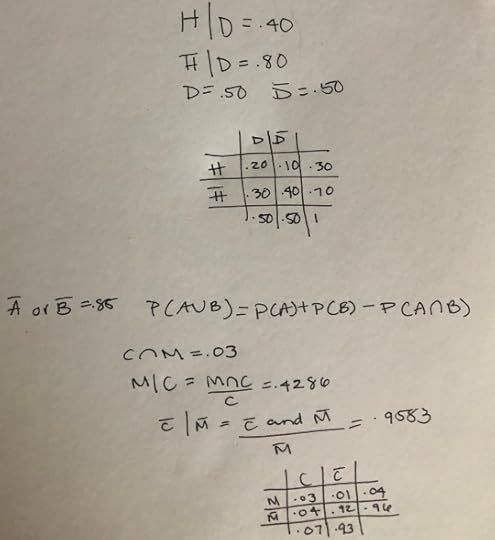 H|D = .40
H̅|D = .80
D = .50 D̅ = .50
D D̅
H .20 .10 .30
H̅ .30 .40 .70
.50 .50 1
A̅ or B̅ = .85 P(A∪B) = P(A) + P(B) - P(A∩B)
C∩M = .03
M|C = M∩C / C = .4286
C̅|M̅ = C̅ and M̅ / M̅ = .9583
C C̅
M .03 .01 .04
M̅ .04 .92 .96
.07 .93